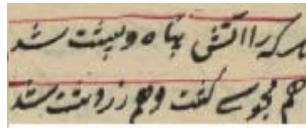 هر که را آتش پناه و پشت شد
هم مجوسی گشت و هم زردشت شد